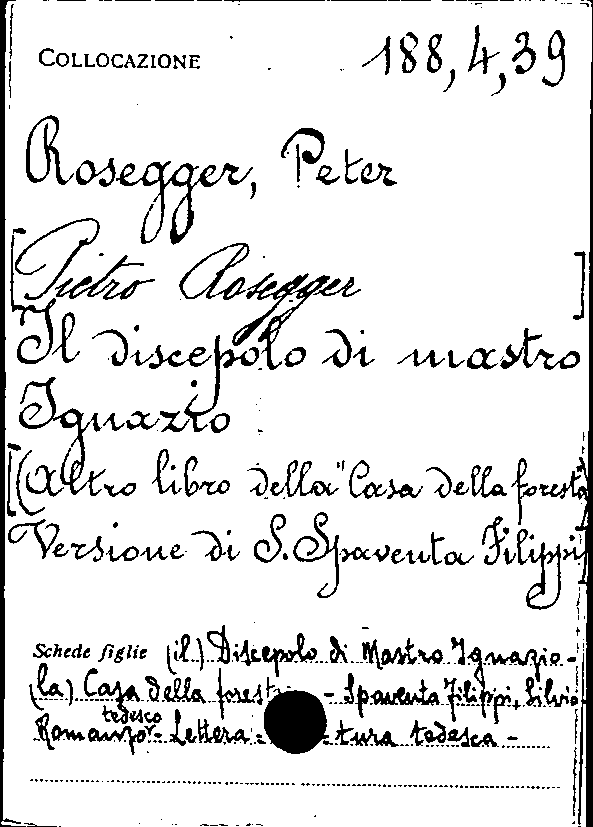 COLLOCAZIONE 188,4,39
Rosegger, Peter
[Pietro Rosegger]
Il discepolo di mastro
Ignazio
[(Altro libro della "Casa della foresta")
Versione di S. Spaventa Filippi]
Schede figlie (il) Discepolo di Mastro Ignazio-
(la) Casa della foresta - Spaventa Filippi, Silvio-
tedesco
Romanzo - Lettera= =tura tedesca -